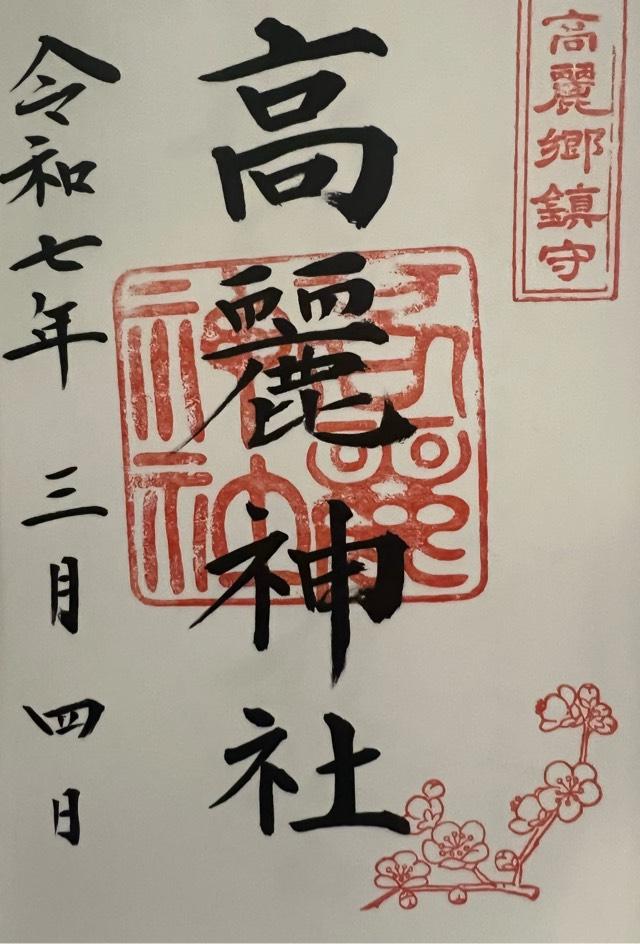 高麗郷鎮守
高麗神社
令和七年 三月 四日